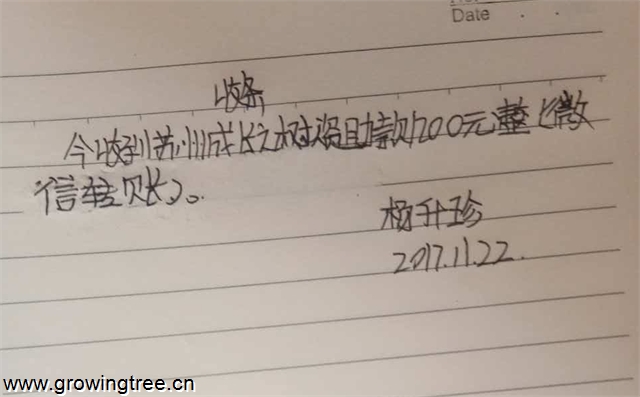 Date . .
收条
今收到苏州成长之树资助款1200元整(微
信转账)。
杨升珍
2017.11.22.
www.growingtree.cn